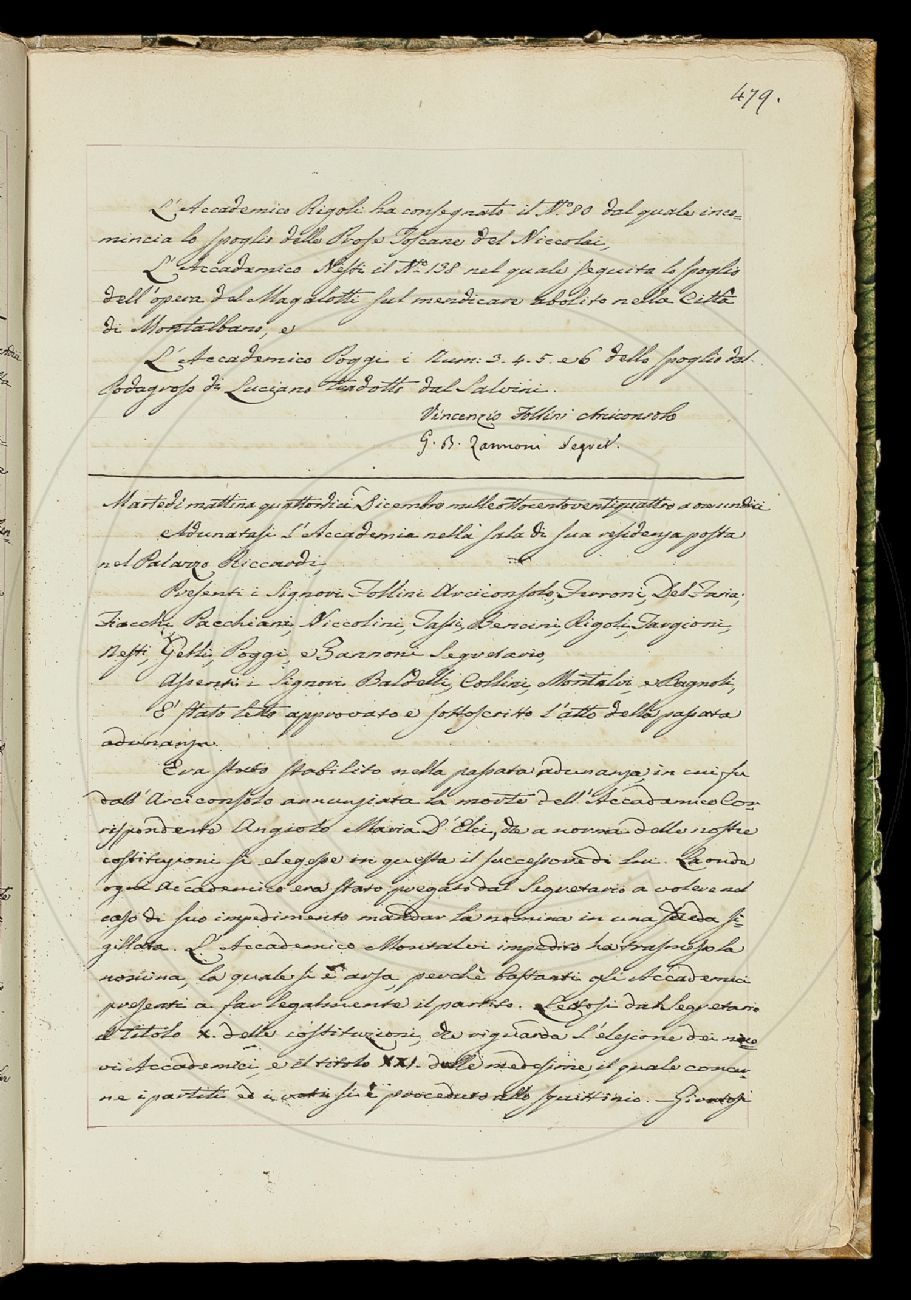 479.
L'Accademico Rigoli ha consegnato il N.º 80 dal quale inco=
mincia lo spoglio delle Prose Toscane del Niccolai,
L'Accademico Nesti il N.º 138 nel quale seguita lo spoglio
dell'opera del Magalotti sul mendicare abolito nella Città
di Montalbano, e
L'Accademico Poggi i Num: 3. 4. 5. e 6 dello spoglio del
Podagroso di Luciano tradotto dal Salvini.
Vincenzio Follini Arciconsolo
G. B. Zannoni Segret.
Martedì mattina quattordici Dicembre mille ottocento ventiquattro a ore undici
Adunatasi l'Accademia nella sala di sua residenza posta
nel Palazzo Riccardi,
Presenti i Signori Follini Arciconsolo, Ferroni, Del Furia,
Fiacchi, Pacchiani, Niccolini, Tassi, Bencini, Rigoli, Targioni,
Nesti, Gelli, Poggi, e Zannoni Segretario,
Assenti i Signori Baldelli, Collini, Montalvi, e Bagnoli,
E' stato letto approvato e sottoscritto l'atto della passata
adunanza.
Era stato stabilito nella passata adunanza, in cui fu
dall'Arciconsolo annunziata la morte dell'Accademico Cor=
rispondente Angiolo Maria D'Elci, che a norma delle nostre
costituzioni si elegesse in questa il successore di lui. Laonde
ogni Accademico era stato pregato dal Segretario a volere nel
caso di suo impedimento mandar la nomina in una scheda si=
gillata. L'Accademico Montalvi impedito ha trasmesso la
nomina, la quale si è arsa, perchè bastanti gli Accademici
presenti a far legalmente il partito. Lettosi dal Segretario
il titolo X. delle costituzioni, che riguarda l'elezione dei nuo=
vi Accademici, e il titolo XXI. delle medesime, il quale concer=
ne i partiti ed i voti si è proceduto allo squittinio. Giratosi